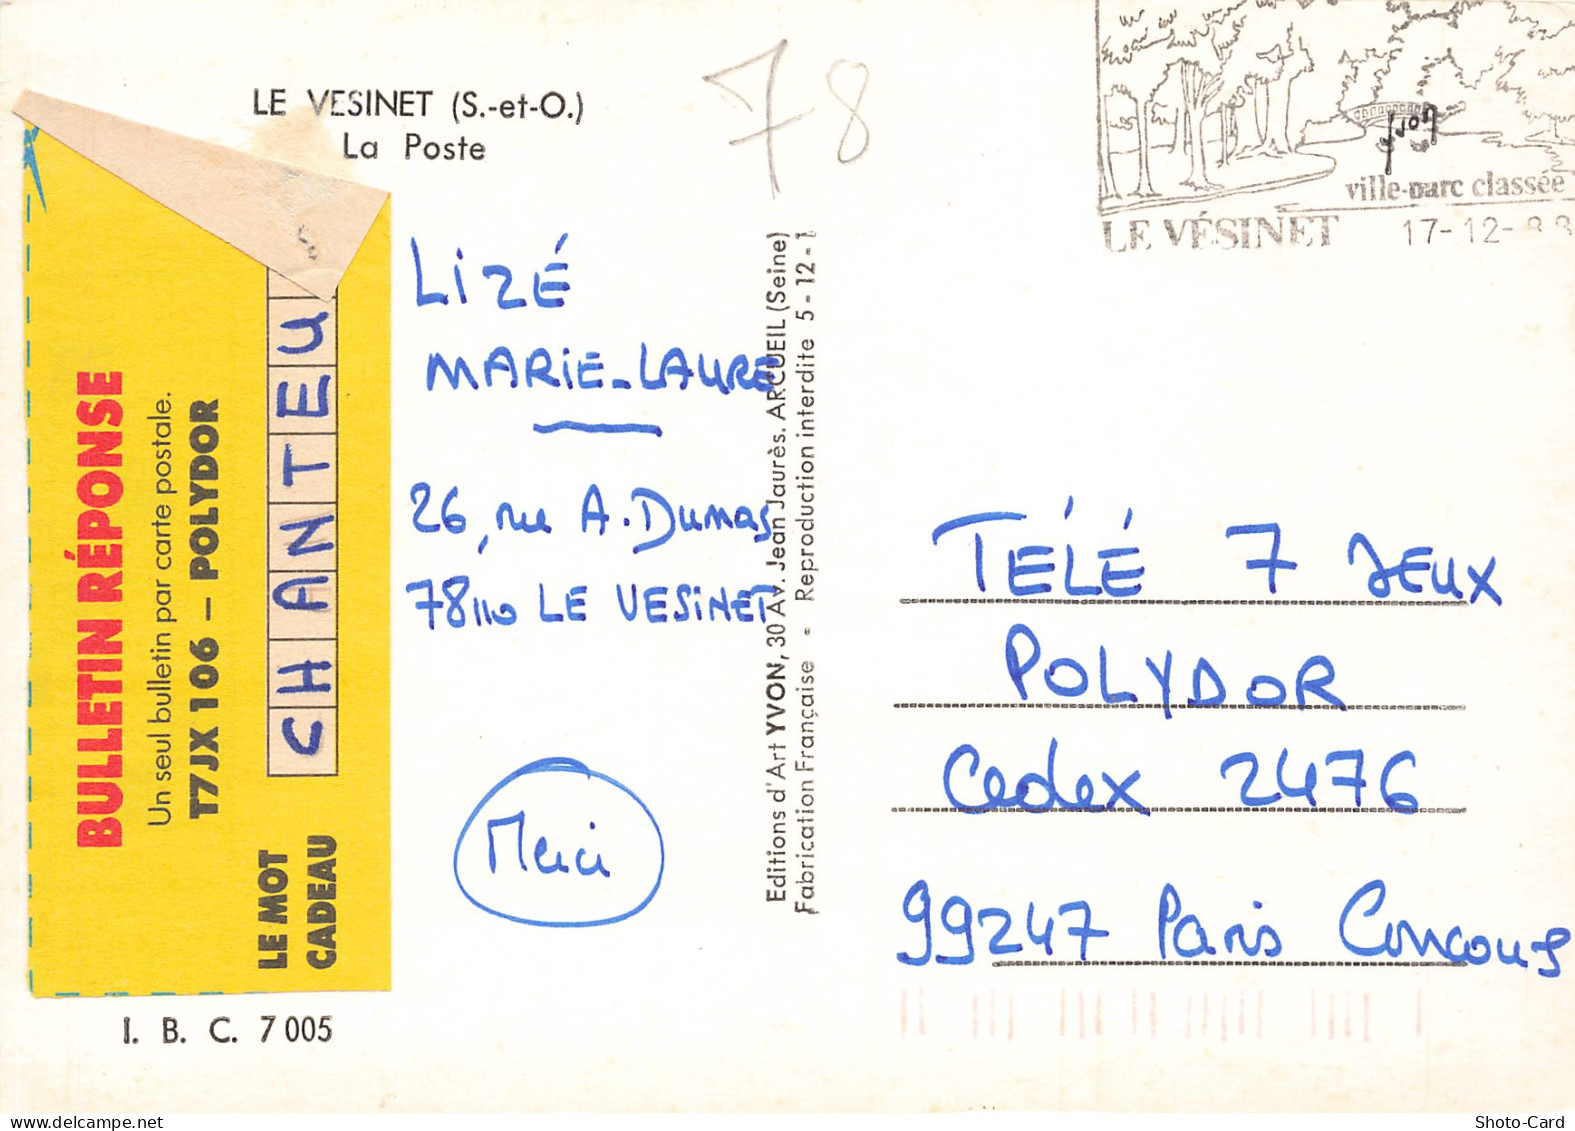 LE VESINET (S.-et-O.)
La Poste
78
ville-parc classée
LE VÉSINET 17-12-88
Yvon
BULLETIN RÉPONSE
Un seul bulletin par carte postale.
T7JX 106 – POLYDOR
LE MOT
CADEAU
CHANTEU
I. B. C. 7 005
LIZÉ
MARIE-LAURE
26, rue A. Dumas
78110 LE VESINET
Merci
Editions d'Art YVON, 30 Av. Jean Jaurès. ARCUEIL (Seine)
Fabrication Française = Reproduction interdite 5 - 12 - 1
TÉLÉ 7 JEUX
POLYDOR
Cedex 2476
99247 Paris Concours
Shoto-Card